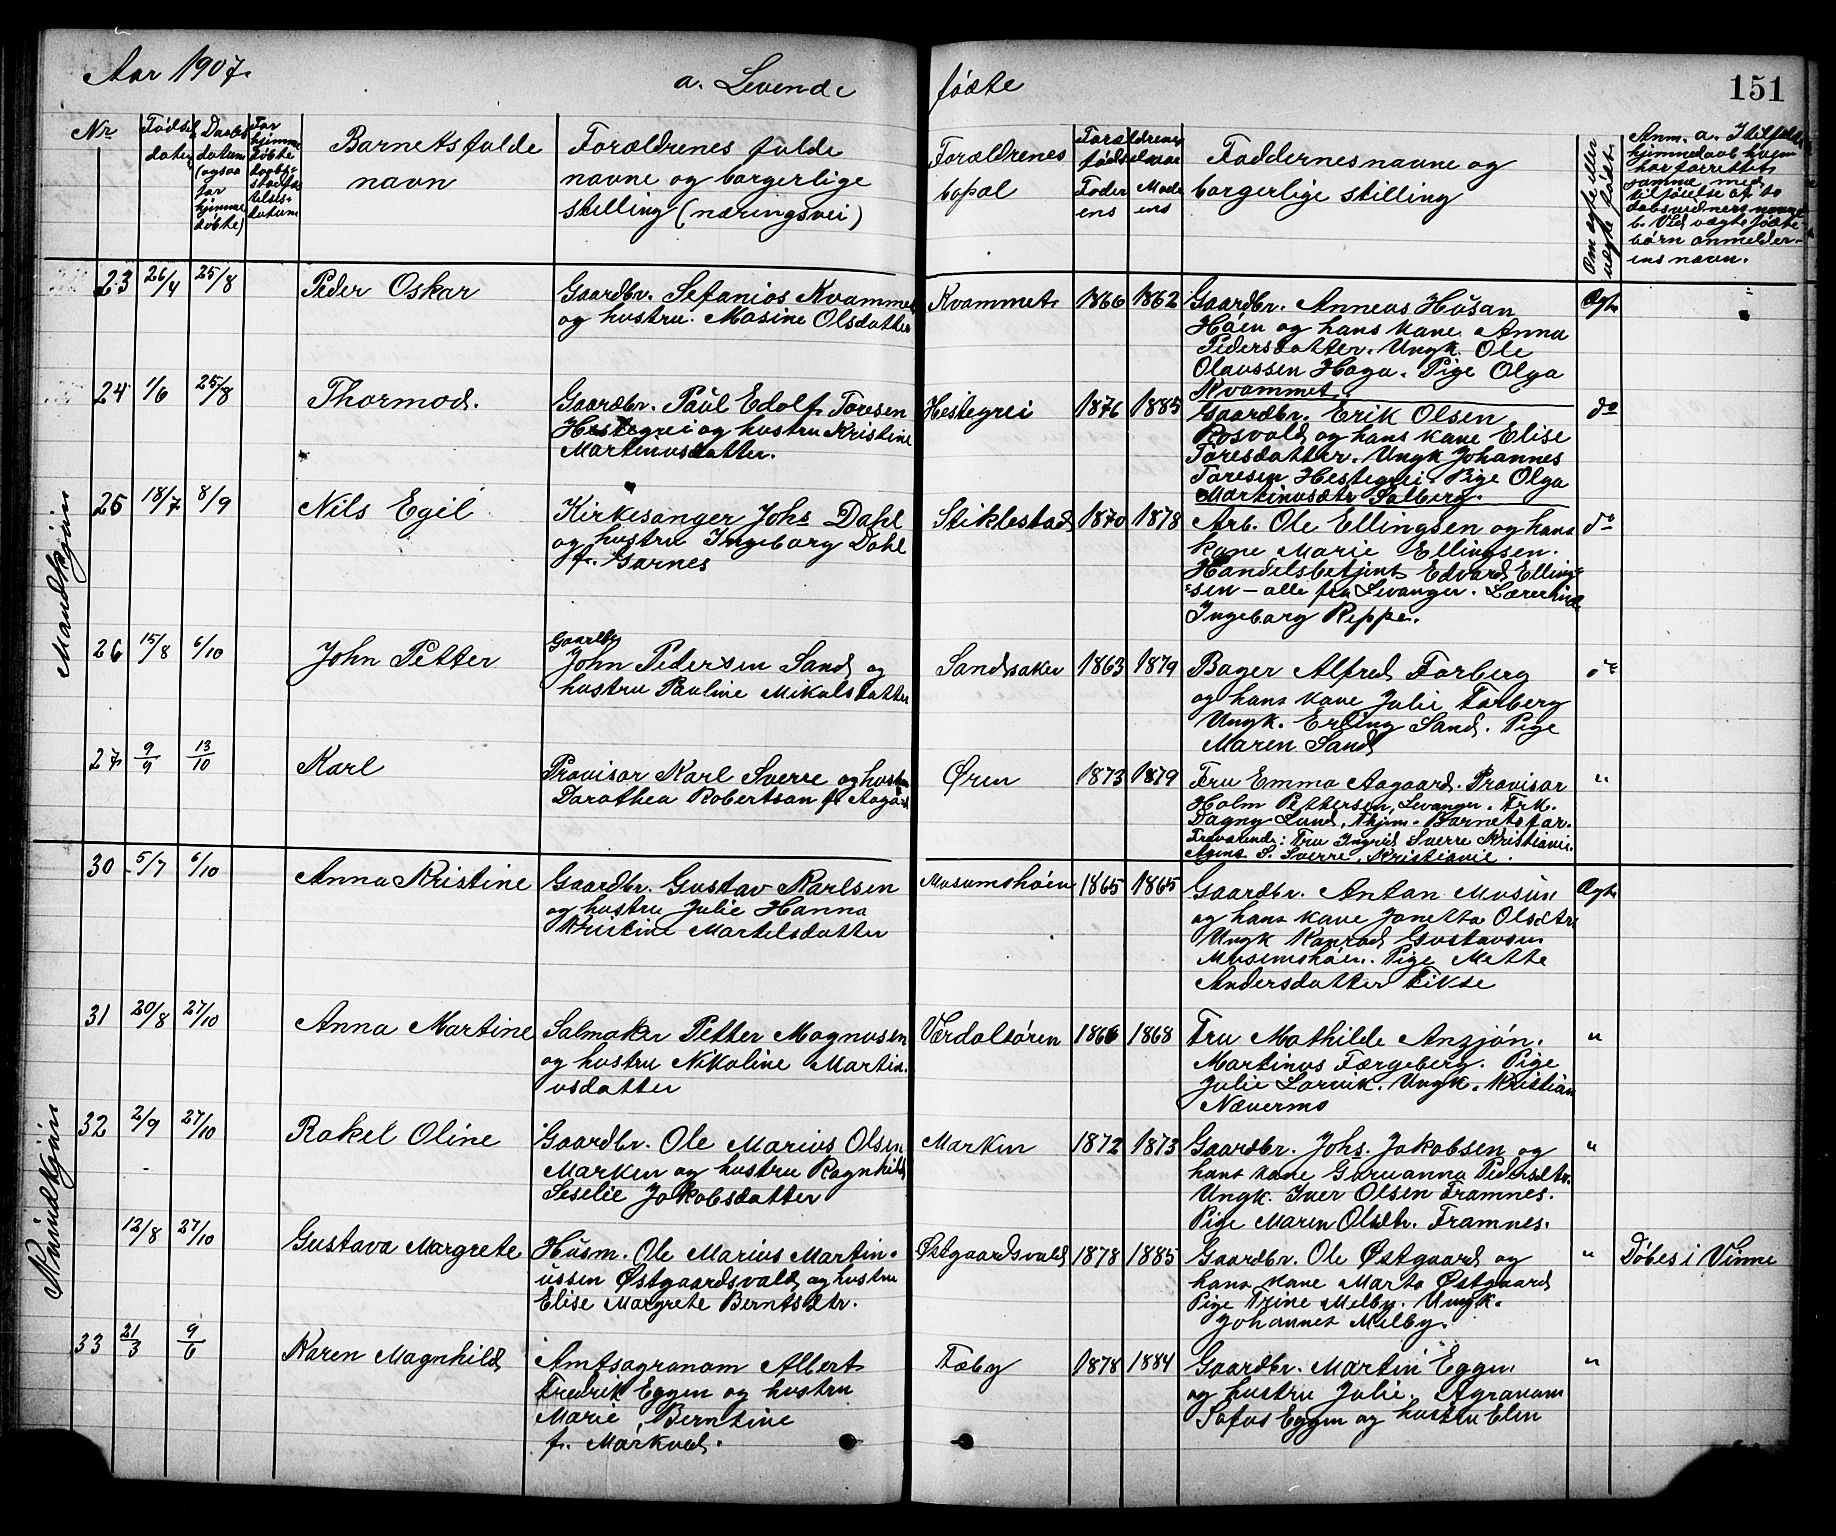 Aar 1907. a. Levende fødte 151
Nr
Fødsels
dato
Daabs
datum
(ogsaa
for
hjemme
døbte)
For
hjemme
døbte
daabs
stadfæ
telses-
datum
Barnets fulde
navn
Forældrenes fulde
navne og borgerlige
stilling (næringsvei)
Forældrenes
bopæl
Forældrenes
fødselsaar
Faderens
Moderens
Faddernes navne og
borgerlige stilling
Om ægte eller
uægte født.
Anm. a. I tilfælde
hjemmedaab hvem
har forrettet
samme, med
tilføielse af to
daabsvidners navne
b. Ved uægte fødte
børn anmelder-
ens navn.
Mandkjøn
23 26/4 25/8 Peder Oskar
Gaardbr. Sefanias Kvammet
og hustru. Masine Olsdatter
Kvammet 1866 1862
Gaardbr. Anneus Husan
Høen og hans kone Anna
Pedersdatter. Ungk. Ole
Olaussen Haga. Pige Olga
Kvammet.
Ægte
24 1/6 25/8 Thormod.
Gaardbr. Paul Edolf Toresen
Hestegrei og hustru Kristine
Martinusdatter.
Hestegrei 1876 1885
Gaardbr. Erik Olsen
Rosvold og hans kone Elise
Toresdatter. Ungk Johannes
Toresen Hestegrei. Pige Olga
Martinusdtr Solberg.
do
25 18/7 8/9 Nils Egil
Kirkesanger Johs Dahl
og hustru Ingeborg Dahl
f. Garnes
Stiklestad 1870 1878
Arb. Ole Ellingsen og hans
kone Marie Ellingsen.
Handelsbetjent Edvard Elling=
=sen - alle fra Levanger. Lærerinde
Ingeborg Reppe.
do
26 15/8 6/10 John Petter
Gaardbr
John Pedersen Sand og
hustru Pauline Mikalsdatter
Sandsaker 1863 1879
Bager Alfred Forberg
og hans kone Julie Forberg
Ungk. Erling Sand. Pige
Maren Sand
do
27 9/9 13/10 Karl
Provisor Karl Sverre og hustru
Dorothea Robertson f. Aagård
Øren 1873 1879
Fru Emma Aagaard. Provisor
Holm Pettersen, Levanger. Frk.
Dagny Lund, Thjem. Barnets far.
Fraværende: Fru Ingrid Sverre Kristiania.
S. Sverre, Kristiania.
"
Kvindkjøn
30 5/7 6/10 Anna Kristine
Gaardbr. Gustav Karlsen
og hustru Julie Hanna
Kristine Martelsdatter
Musumshøen 1865 1865
Gaardbr. Anton Musum
og hans kone Janetta Olsdtr.
Ungk Konrad Gustavsen
Musumshøen. Pige Mette
Andersdatter Fikse
Ægte
31 20/8 27/10 Anna Martine
Salmaker Petter Magnussen
og hustru Nikoline Martin.
usdatter
Værdalsøren 1866 1868
Fru Mathilde Anzjøn.
Martinus Færgeberg. Pige
Julie Larvik. Ungk. Kristian
Nævermo
"
32 2/9 27/10 Rakel Oline
Gaardbr. Ole Marius Olsen
Marken og hustru Ragnhild
Seselie Jakobsdatter
Marken 1872 1873
Gaardbr. Johs. Jakobsen og
hans kone Guruanna Pedersdtr.
Ungk. Iver Olsen Framnes.
Pige Maren Olsdtr. Framnes.
"
12/8 27/10 Gustava Margrete
Husm. Ole Marius Martin=
ussen Østgaardsvald og hustru
Elise Margrete Berntsdtr.
Østgaardsvald 1878 1885
Gaardbr. Ole Østgaard og
hans kone Marta Østgaard
Pige Trine Melby. Ungk.
Johannes Melby.
" Døbes i Vinne
33 21/3 9/6 Karen Magnhild
Amtsagronom Albert
Fredrik Eggen og hustru
Marie, Berntine
f. Markved.
Fæby 1878 1884
Gaardbr. Martin Eggen
og hustru Julie. Agronom
Sofus Eggen og hustru Elen
"